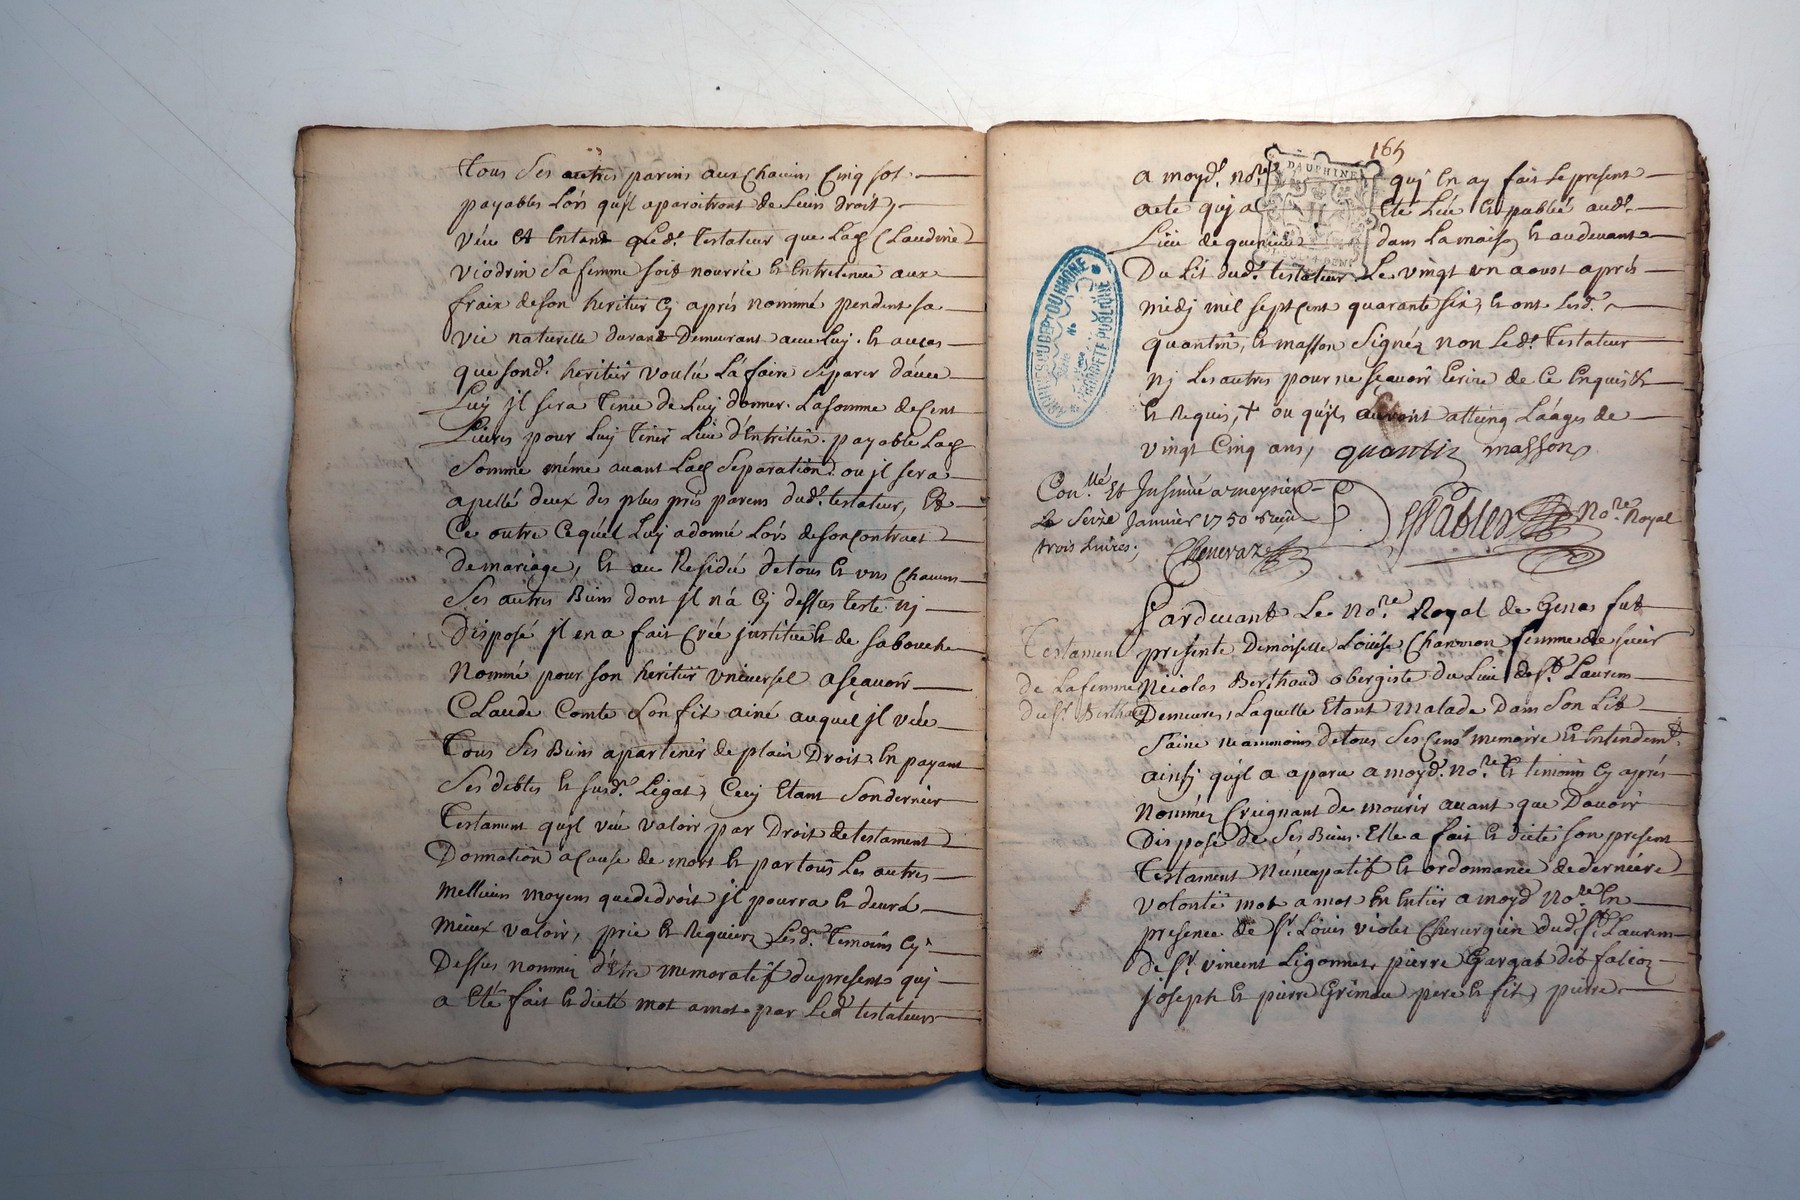 Tous Ses autres parens aux Chacuns Cinq sol.
payables Lors qu'il aparoitront de Leurs droit,
véu Et Entend Led. testateur que Lad. Claudine
viodrin Sa femme soit nourrie Et Entretenue aux
fraix de son heritier Cy aprés nommé pendent sa
vie naturelle durant Demeurant avec Luy. Et au cas
que sond. heritier voulu La faire Separer d'avec
Luy il sera Tenu de Luy donner. La somme de Cent
Livres pour Luy Tenir Lieu d'Entretien. payable Lad.
Somme même avant Lad. Separation. ou il sera
apellé deux des plus prés parens dud. testateur, Et
Ce outre Ce quel Luy a donné Lors de son Contract
de mariage, Et au Residû de tous Et uns Chacuns
Ses autres Biens dont il n'a Cy dessus Testé nj
Disposé il en a fait Créé institué Et de sa bouche
Nommé pour son heritier vniversel a sçavoir
CLaude Comte Son fit ainé auquel il véu
Tous Ses Biens apartenir de plain Droit, En payant
Ses debtes Et susd. Legat, Cecy Etant Son dernier
Testament quyl véu valoir par Droit de testament
Donnation a Cause de mort Et par tous Les autres
mellieurs moyens que de droit jl pourra Et deura
mieux valoir, prie Et Requiert Lesd. Temoins Cy
Dessus nommez d'Etre memoratif du present qui
a Eté fait Et dicté mot a mot par Led. testateurs
165
a moyd. No.re qui En ay fait Le present
DAUPHINE
acte qui a Eté Lue Et publié aud.
Lieu de dans La maison Et audevant
Du Lit dud. testateur. Le vingt vn aoust aprés
midj mil sept Cent quarante six, Et ont Lesd.
quantin, Et masson Signéz non Led. Testateur
Nj Les autres pour ne sçavoir Ecrire de Ce Enquist
Et Requis, + ou qu'ils auroint atteing L'aages de
vingt Cinq ans, quantin masson
ARCHIVES DU DEPT DU RHÔNE
PROPRIÉTÉ PUBLIQUE
Con.llé Et Insinué a meyzieu
Le Seize Janvier 1750 Reçu
trois Livres. Cheneraz
No.re Royal
Pardevant Le No.re Royal de Genas fut
Testament
presente Demoiselle Loüise Charmon femme de sieur
de La femme
Nicolas Berthaud obergiste du Lieu de St. Laurens
du Sr. Berthaud
Demeures, Laquelle Etant malade Dans Son Lit
Saine neammoins de tous Ses Cens memoire Et Entendem.t
ainsj qu'il a aparu a moyd. No.re Et temoins Cy aprés
Noméz Creignant de mourir avant que D'avoir
Disposé de Ses Biens. Elle a fait Et dicté son present
Testament Nuncupatif Et ordonnance de derniére
volonté mot a mot En Entier a moyd. No.re En
presence de Sr. Loüis violet Chirurgien dud. St. Laurens
de Sr. vincent Ligonnet, pierre Gargat dit
joseph Et pierre Grimau pere Et fit, pierre